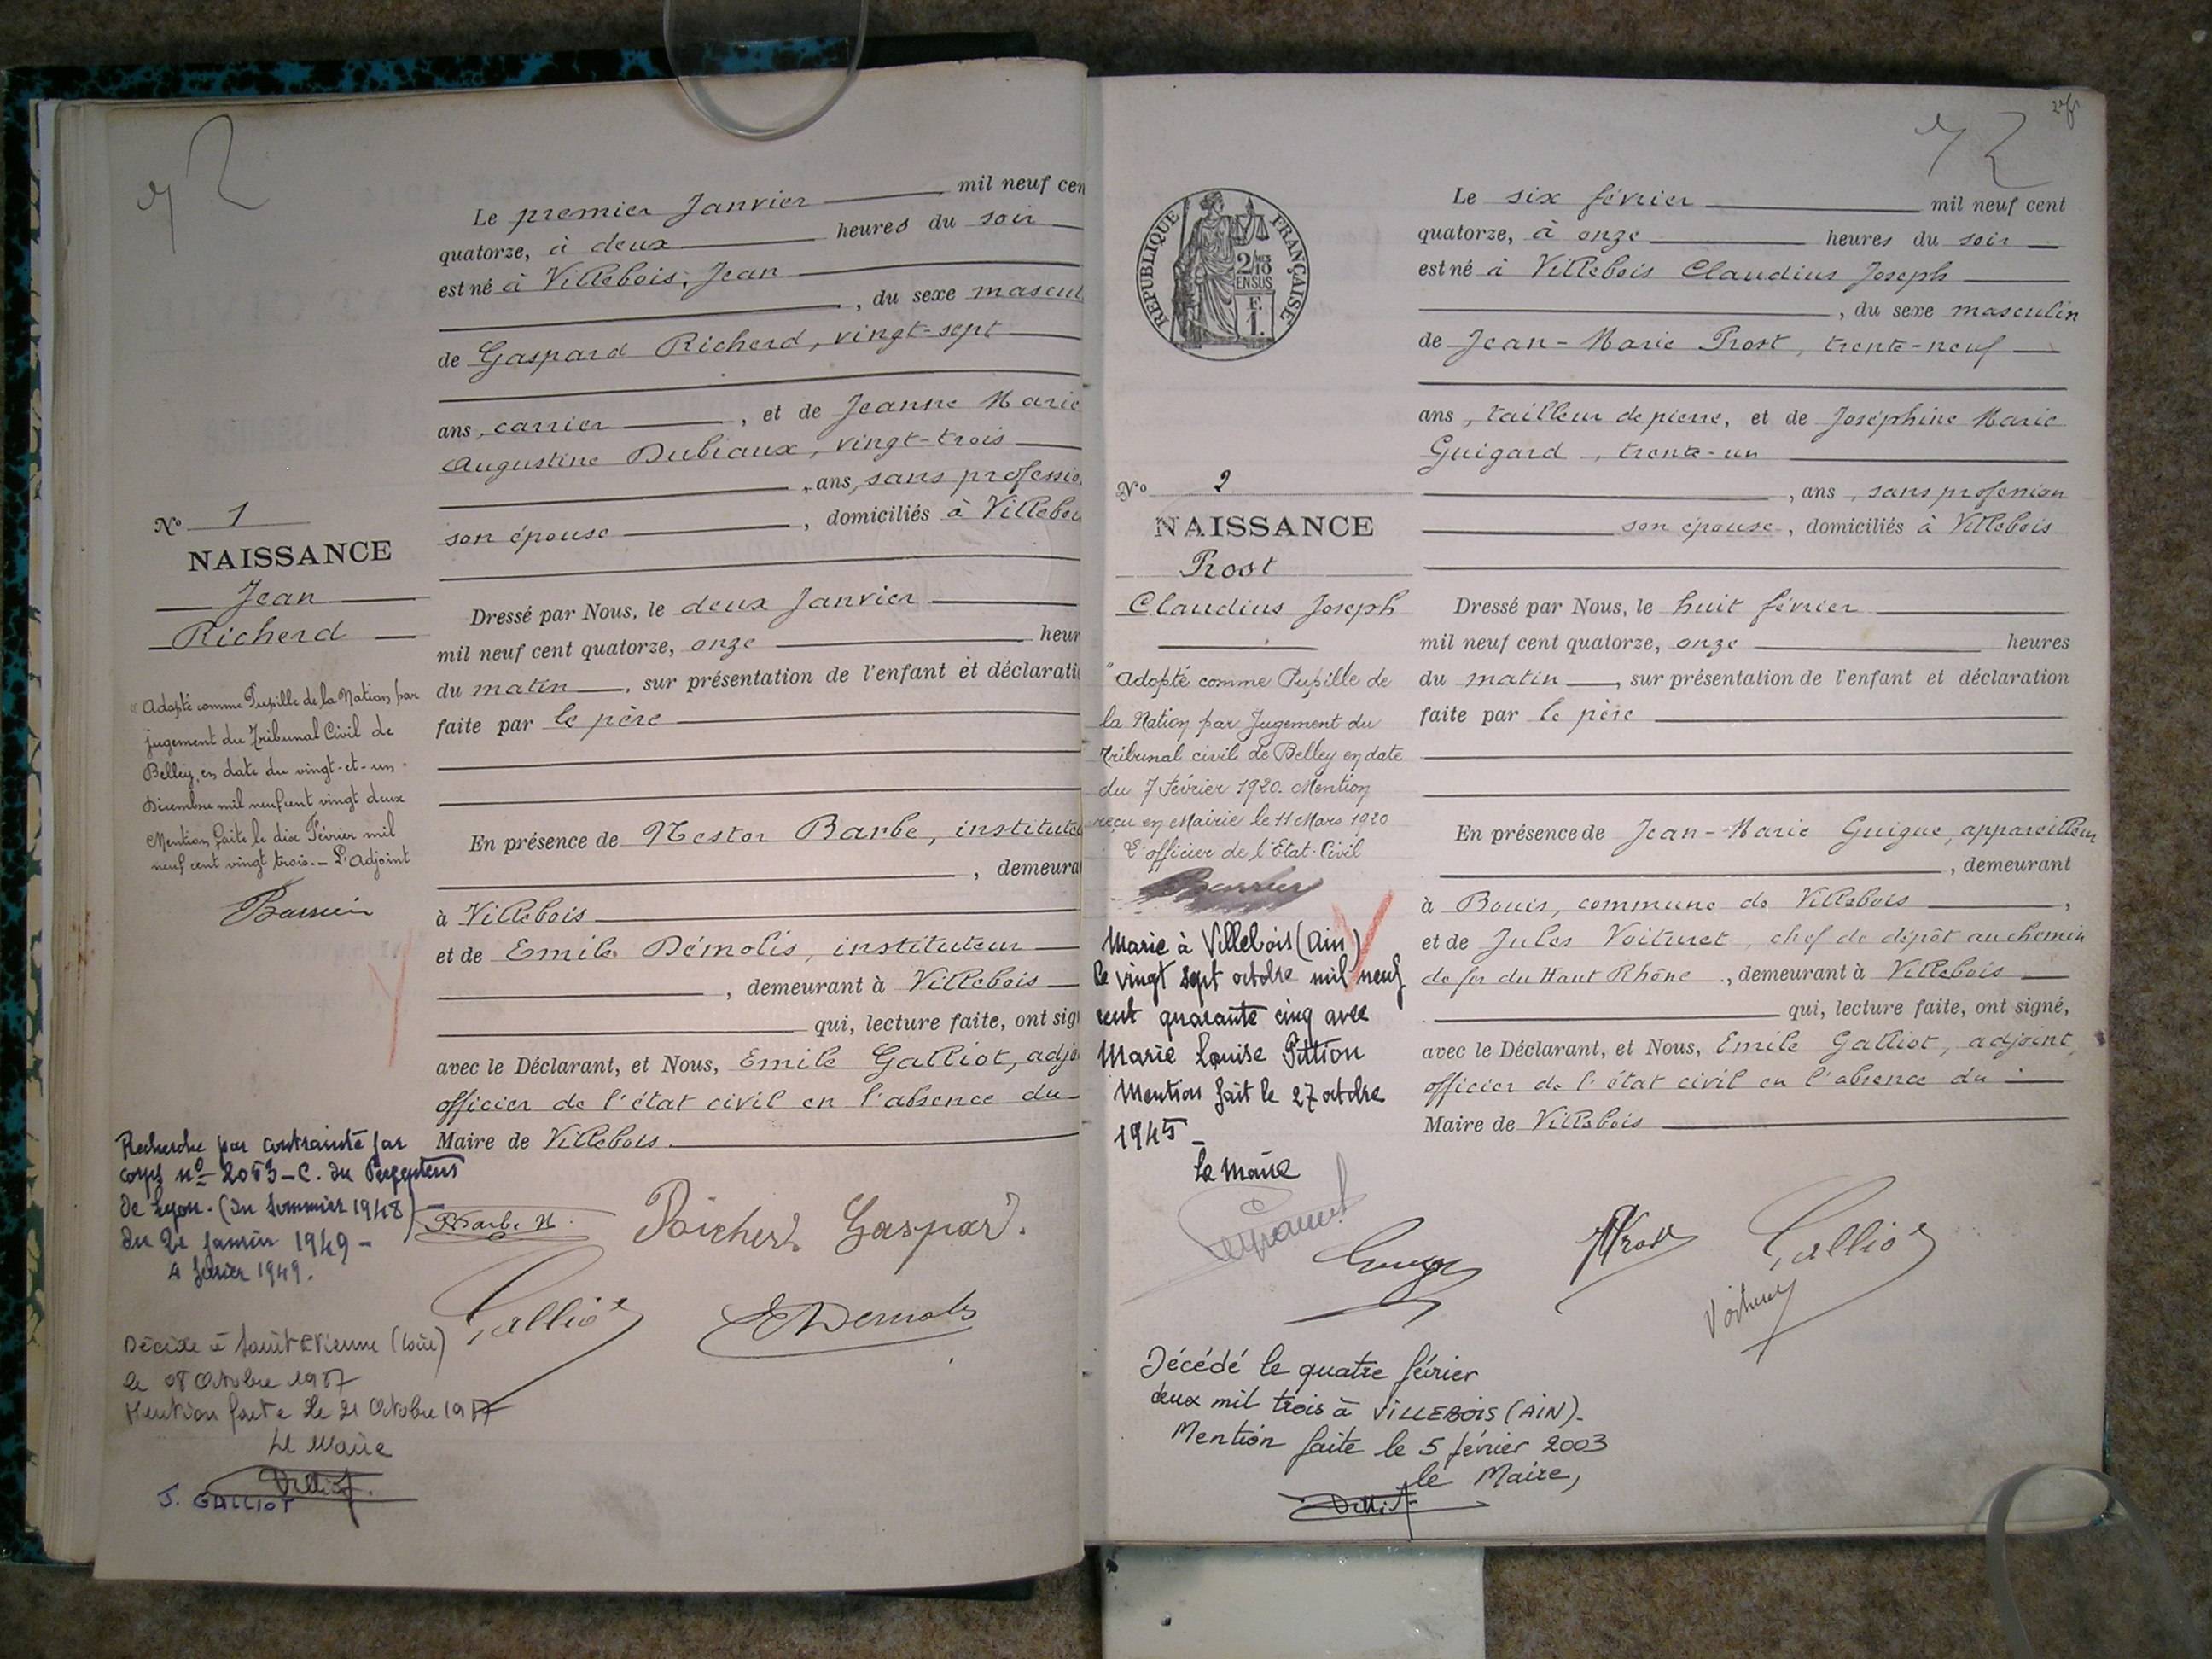 Le premier Janvier mil neuf cen
quatorze, à deux heures du soir
est né à Villebois, Jean
, du sexe mascul
de Gaspard Richerd, vingt-sept
ans, carrier, et de Jeanne Marie
Augustine Dubiaux, vingt-trois
, ans, sans professio
son épouse, domiciliés à Villeboi
N° 1
NAISSANCE
Jean
Richerd
Dressé par Nous, le deux Janvier
mil neuf cent quatorze, onze heur
du matin, sur présentation de l'enfant et déclarati
faite par le père
"Adopté comme Pupille de la Nation par
jugement du Tribunal Civil de
Belley, en date du vingt-et-un
Décembre mil neuf cent vingt deux
Mention faite le dix Février mil
neuf cent vingt trois. — L'Adjoint
En présence de Nestor Barbe, institute
, demeura
à Villebois
et de Emile Démolis, instituteur
, demeurant à Villebois
qui, lecture faite, ont sig
avec le Déclarant, et Nous, Emile Galliot, adjo
officier de l'état civil en l'absence du
Maire de Villebois
Recherche par contrainte par
corps n° 2053-C. du Percepteur
de Lyon. (du Sommier 1948)
du 21 Janvier 1949 -
4 février 1949.
Barbe N.
Richerd Gaspard.
Galliot
E Demolis
Décédé à Saint Etienne (Loire)
le 08 Octobre 1987
Mention faite le 21 Octobre 1987
Le Maire
J. GALLIOT
72
RÉPUBLIQUE FRANÇAISE
2/10 EN SUS
F.
1.
Le six février mil neuf cent
quatorze, à onze heures du soir
est né à Villebois Claudius Joseph
, du sexe masculin
de Jean-Marie Prost, trente-neuf
ans, tailleur de pierre, et de Joséphine Marie
Guigard, trente-un
, ans, sans profession
son épouse, domiciliés à Villebois
N° 2
NAISSANCE
Prost
Claudius Joseph
Dressé par Nous, le huit février
mil neuf cent quatorze, onze heures
du matin, sur présentation de l'enfant et déclaration
faite par le père
"Adopté comme Pupille de
la Nation par Jugement du
Tribunal civil de Belley en date
du 7 Février 1920. Mention
reçu en Mairie le 11 Mars 1920
L'officier de l'Etat-Civil
En présence de Jean-Marie Guigue, appareilleur
, demeurant
à Bouis, commune de Villebois,
et de Jules Voituret, chef de dépôt au chemin
de fer du Haut Rhône, demeurant à Villebois
qui, lecture faite, ont signé,
avec le Déclarant, et Nous, Emile Galliot, adjoint,
officier de l'état civil en l'absence du
Maire de Villebois
Marié à Villebois (Ain)
le vingt sept octobre mil neuf
cent quarante cinq avec
Marie Louise Pittion
Mention fait le 27 octobre
1945 -
Le Maire
Prost
Galliot
Voituret
Décédé le quatre février
deux mil trois à VILLEBOIS (AIN).
Mention faite le 5 février 2003
le Maire,